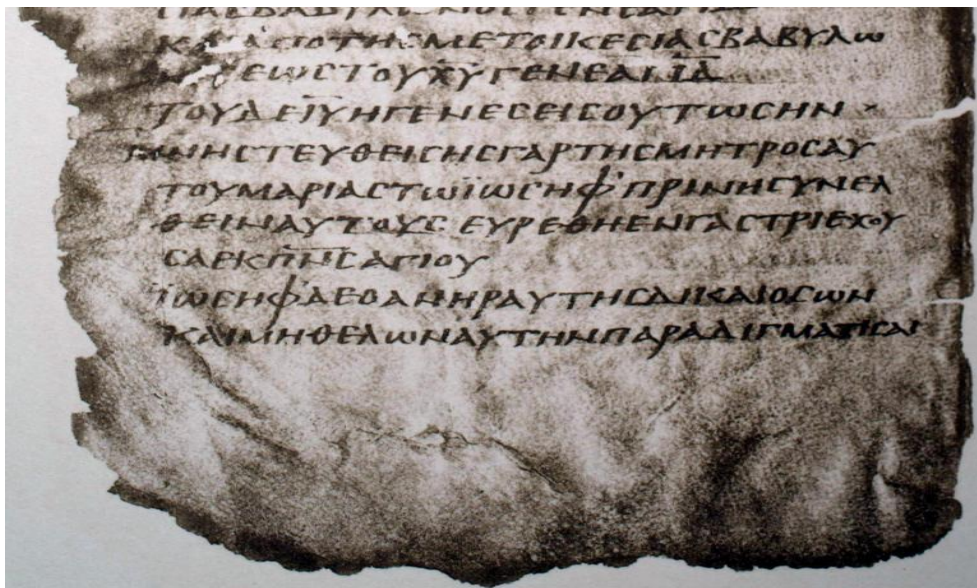 ΒΑΒΥΛΩΝΟϹΓΕΝΕΑΙ
ΚΑΙΑΠΟΤΗϹΜΕΤΟΙΚΕϹΙΑϹΒΑΒΥΛΩ
ΕΩϹΤΟΥΧ̅Υ̅ΓΕΝΕΑΙΙ̅Δ̅
ΤΟΥΔΕΙ̅Υ̅ΗΓΕΝΕϹΕΙϹΟΥΤΩϹΗΝ
ΜΝΗϹΤΕΥΘΕΙϹΗϹΓΑΡΤΗϹΜΗΤΡΟϹΑΥ
ΤΟΥΜΑΡΙΑϹΤΩΪΩϹΗΦ᾽ΠΡΙΝΗϹΥΝΕΛ
ΘΕΙΝΑΥΤΟΥϹ ΕΥΡΕΘΗΕΝΓΑϹΤΡΙΕΧΟΥ
ϹΑΕΚΠ̅Ν̅ϹΑΓΙΟΥ
ΪΩϹΗΦΔΕΟΑΝΗΡΑΥΤΗϹΔΙΚΑΙΟϹΩΝ
ΚΑΙΜΗΘΕΛΩΝΑΥΤΗΝΠΑΡΑΔΙΓΜΑΤΙϹΑΙ